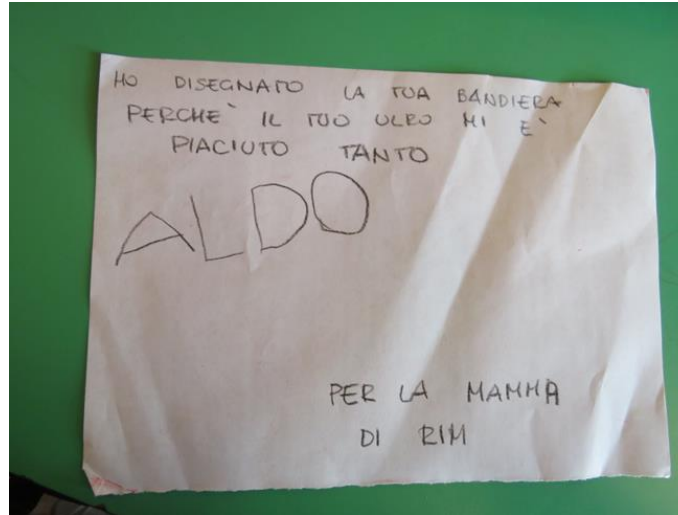 HO DISEGNATO LA TUA BANDIERA
PERCHE` IL TUO ULRO MI E`
PIACIUTO TANTO
ALDO
PER LA MAMMA
DI RIM